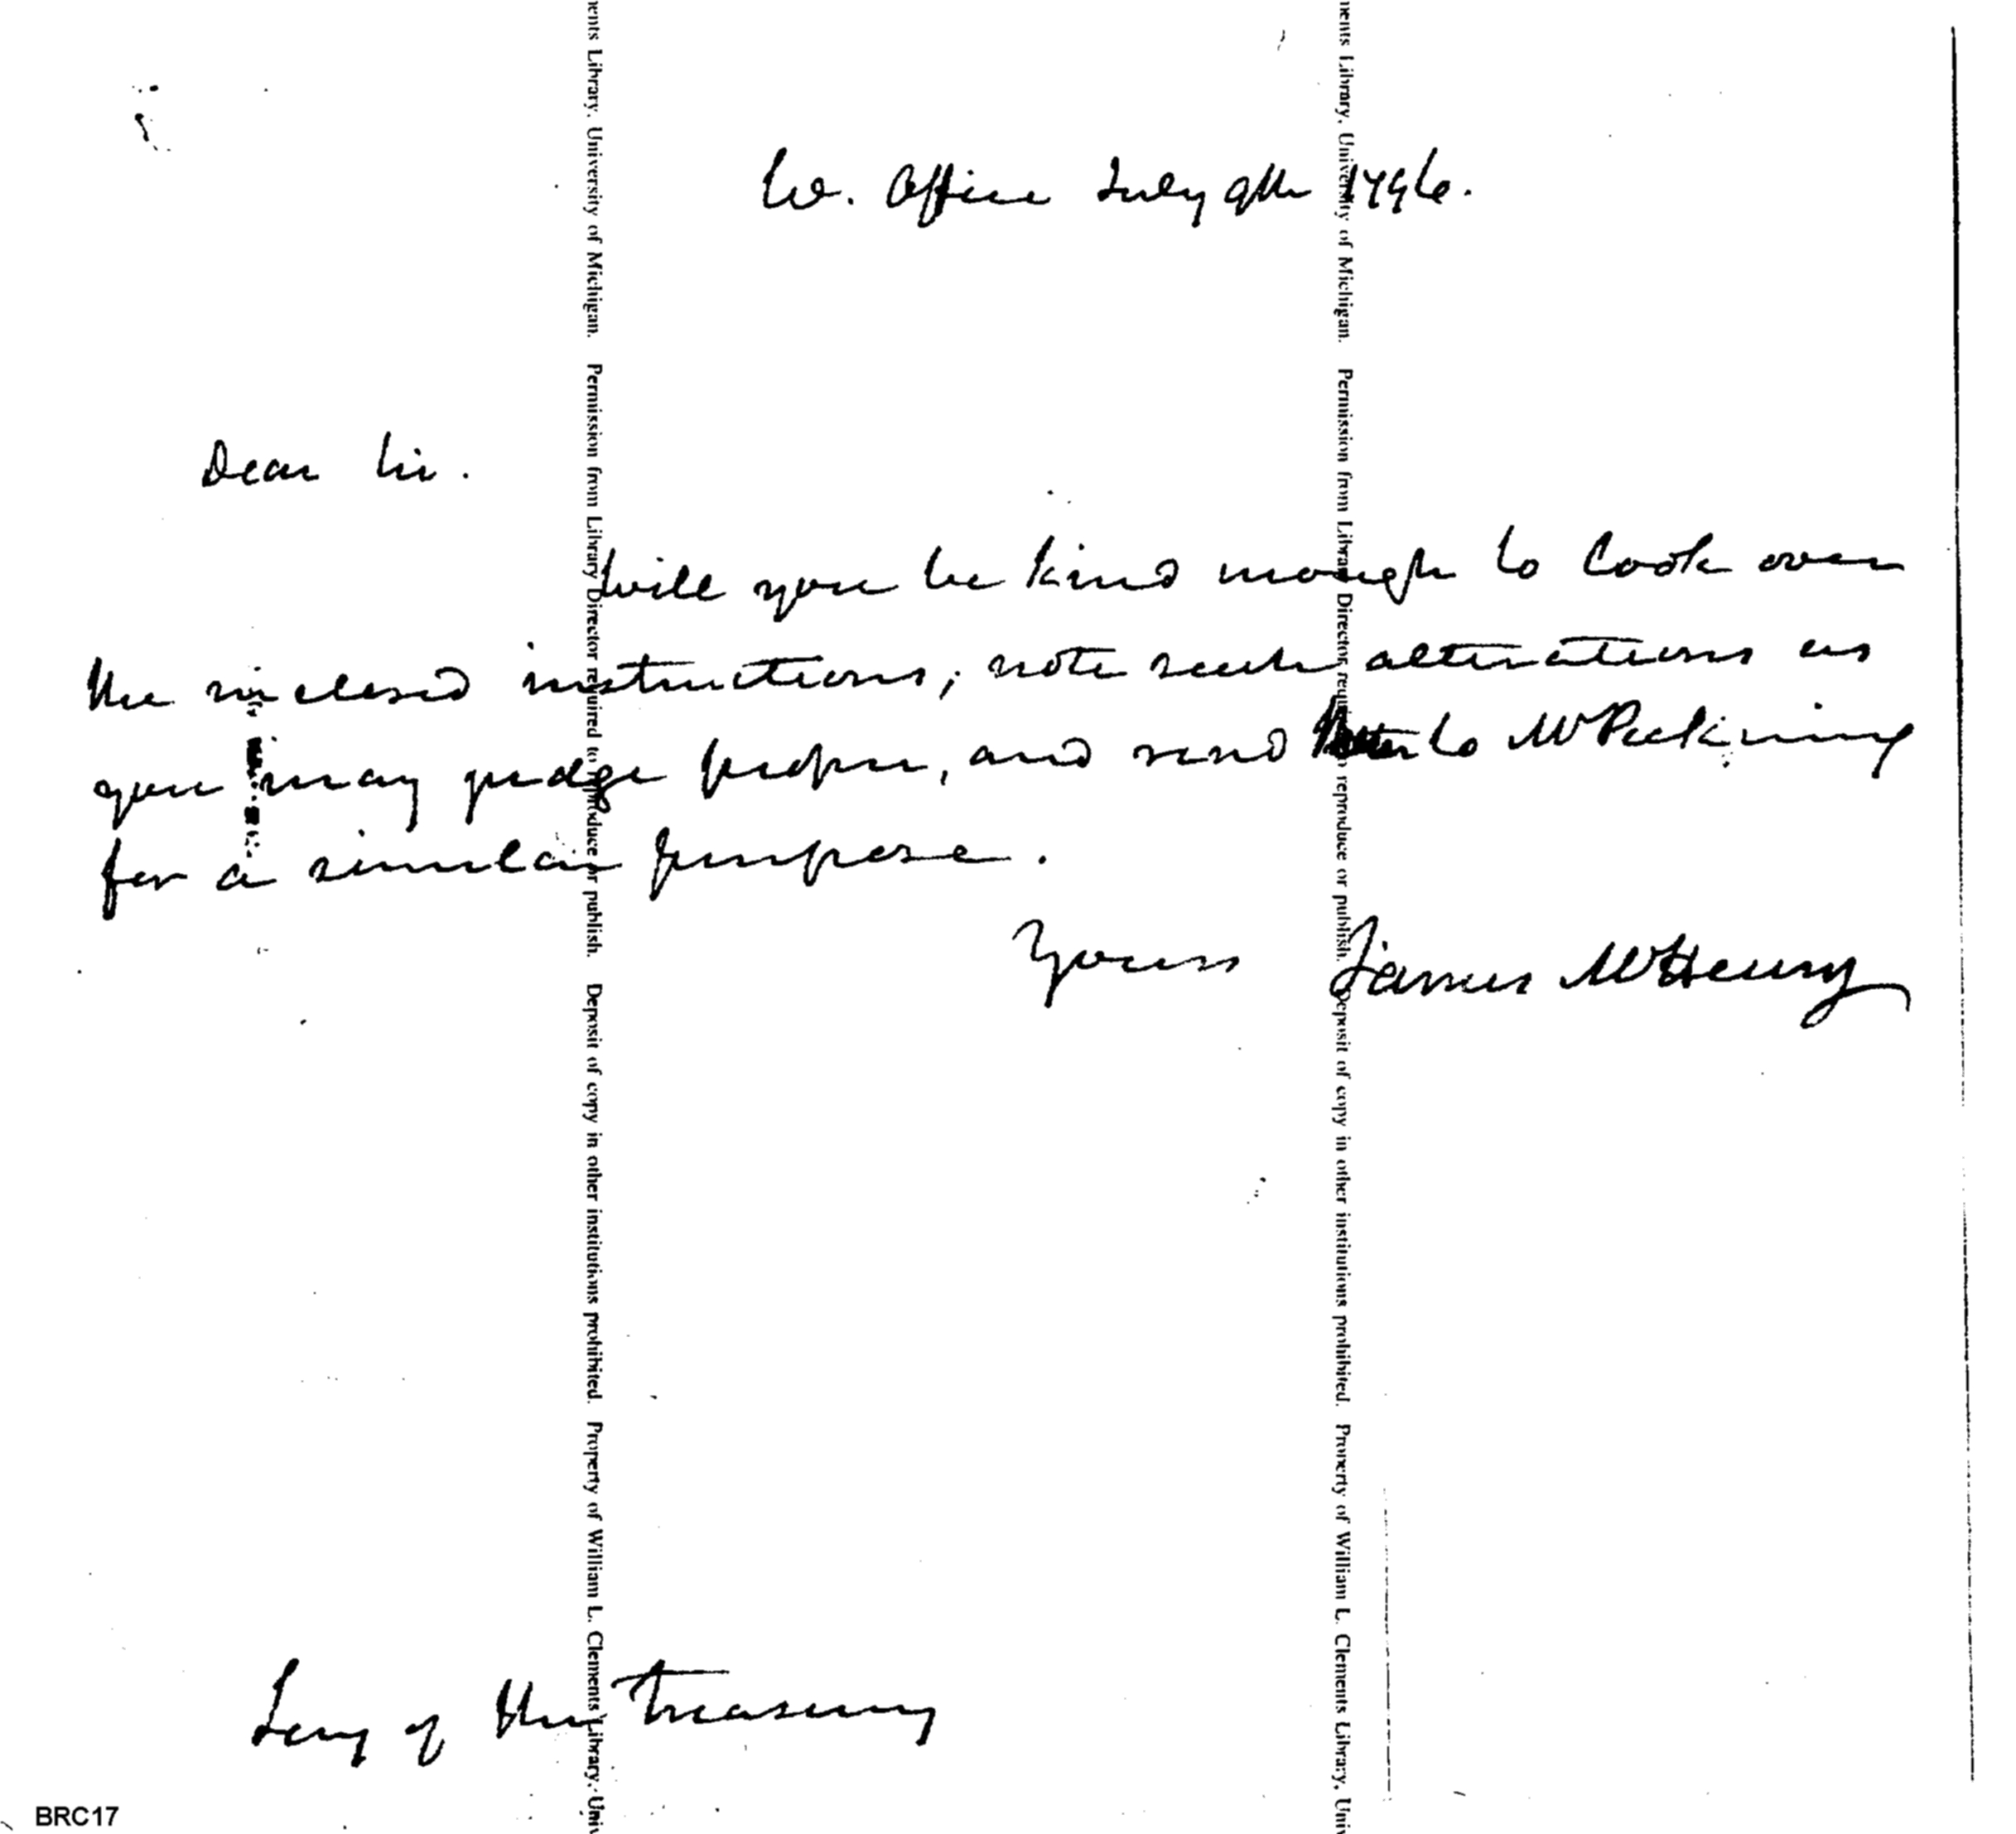 W. Office July 9th 1796.
Dear Sir.
Will you be kind enough to look over
the inclosed instructions; note such alterations as
you may judge proper, and send to Mr Pickering
for a similar purpose.
Yours James McHenry
Secy of the Treasury
BRC17
nents Library, University of Michigan. Permission from Library Director required to reproduce or publish. Deposit of copy in other institutions prohibited. Property of William L. Clements Library, Univ
nents Library, University of Michigan. Permission from Library Director required to reproduce or publish. Deposit of copy in other institutions prohibited. Property of William L. Clements Library, Univ